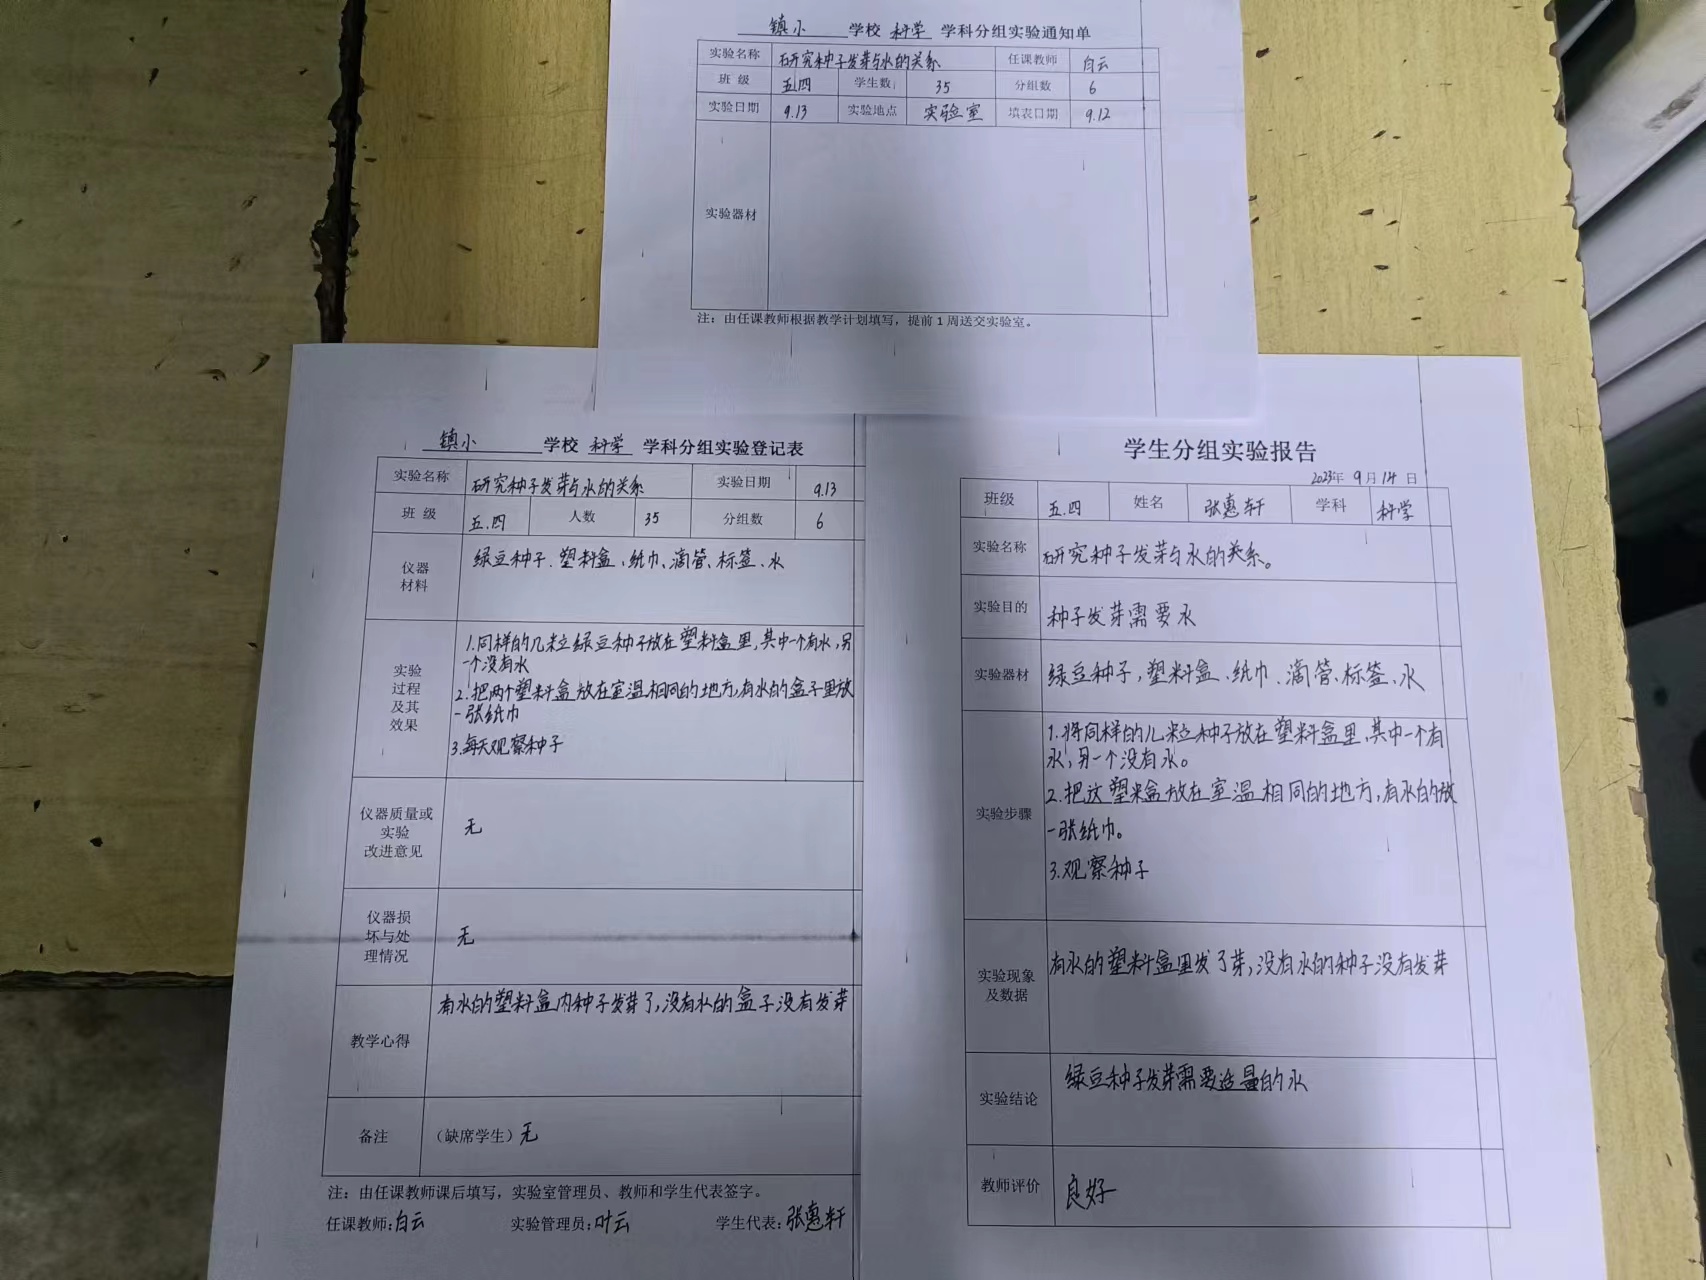 镇小 学校 科学 学科分组实验通知单
实验名称 研究种子发芽与水的关系 任课教师 白云
班 级 五.四 学生数 35 分组数 6
实验日期 9.13 实验地点 实验室 填表日期 9.12
实验器材
注：由任课教师根据教学计划填写，提前1周送交实验室。
镇小 学校 科学 学科分组实验登记表
实验名称 研究种子发芽与水的关系 实验日期 9.13
班 级 五.四 人数 35 分组数 6
仪器
材料
绿豆种子、塑料盒、纸巾、滴管、标签、水
实验
过程
及其
效果
1.同样的几粒绿豆种子放在塑料盒里,其中一个有水,另
一个没有水
2.把两个塑料盒放在室温相同的地方,有水的盒子里放
一张纸巾
3.每天观察种子
仪器质量或
实验
改进意见
无
仪器损
坏与处
理情况
无
教学心得
有水的塑料盒内种子发芽了,没有水的盒子没有发芽
备注 （缺席学生）无
注：由任课教师课后填写，实验室管理员、教师和学生代表签字。
任课教师:白云 实验管理员:叶云 学生代表:张惠轩
学生分组实验报告
2023年 9月14日
班级 五.四 姓名 张惠轩 学科 科学
实验名称 研究种子发芽与水的关系。
实验目的 种子发芽需要水
实验器材 绿豆种子,塑料盒、纸巾、滴管、标签、水
实验步骤
1.将同样的几粒种子放在塑料盒里,其中一个有
水,另一个没有水。
2.把这塑料盒放在室温相同的地方,有水的放
一张纸巾。
3.观察种子
实验现象
及数据
有水的塑料盒里发了芽,没有水的种子没有发芽
实验结论 绿豆种子发芽需要适量的水
教师评价 良好